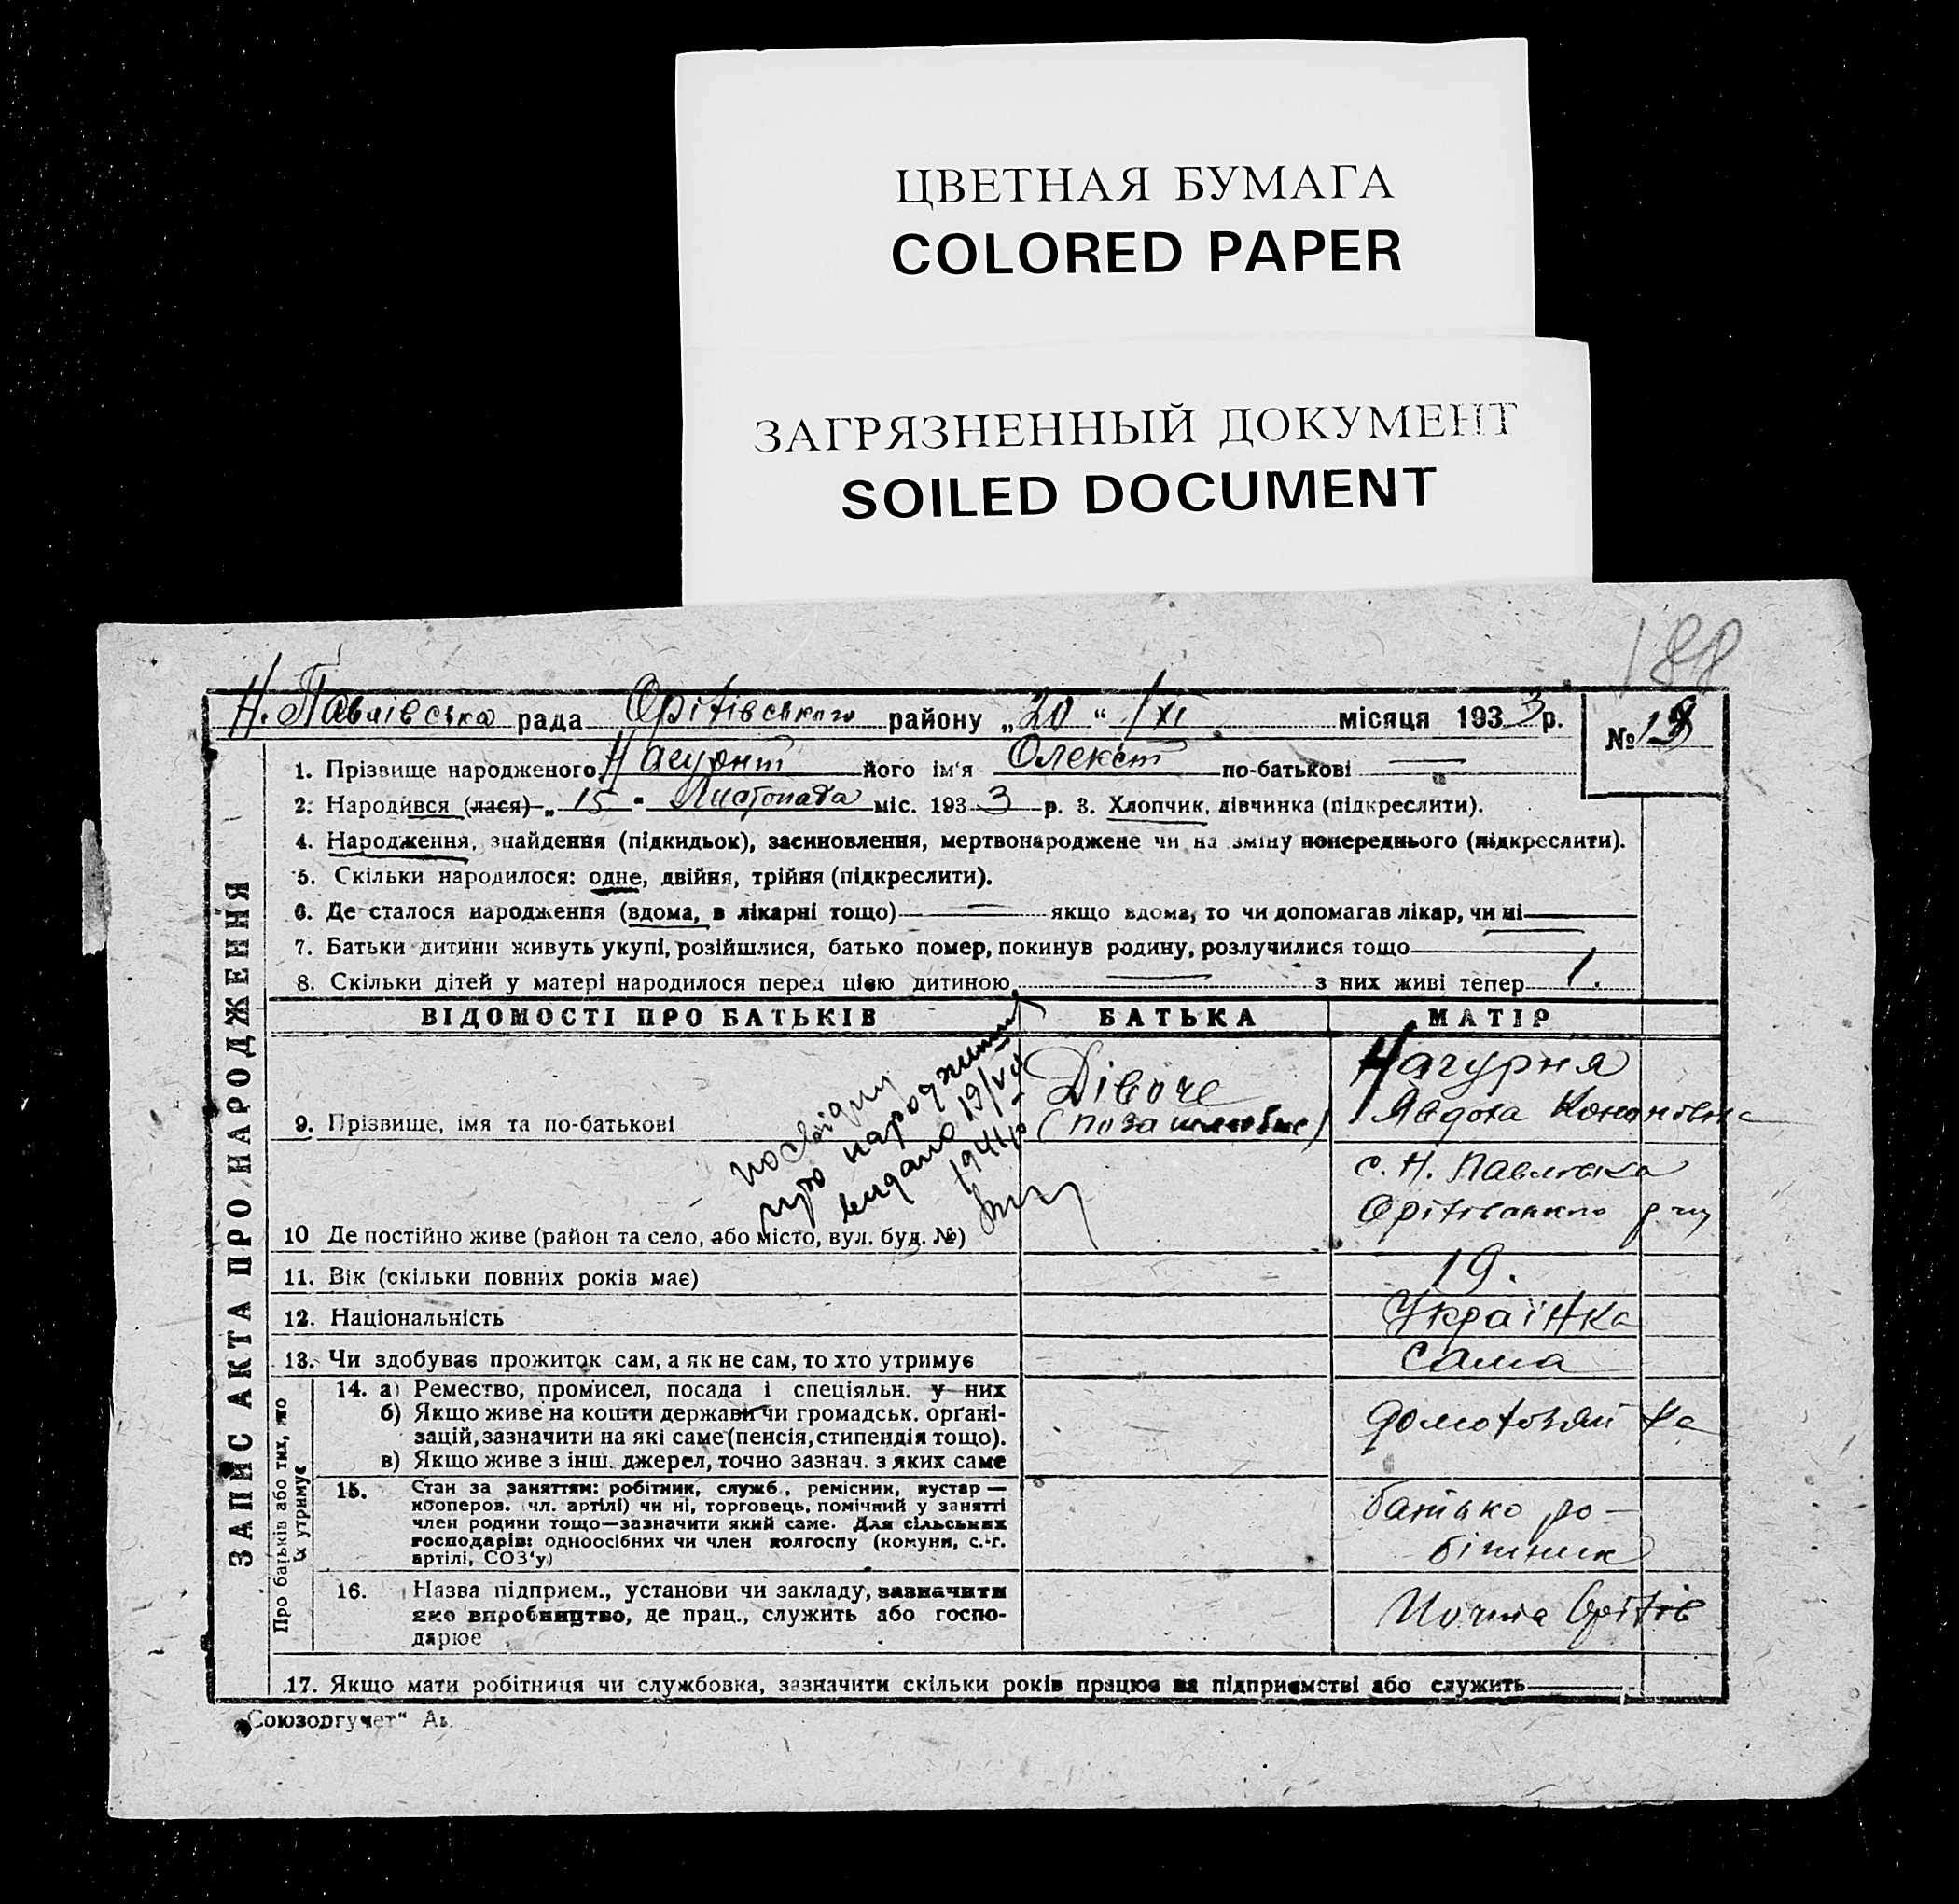 ЦВЕТНАЯ БУМАГА
COLORED PAPER
ЗАГРЯЗНЕННЫЙ ДОКУМЕНТ
SOILED DOCUMENT
188
Н. Павлівська рада Орітівського району „20“ /XI місяця 1933 р.
№
1. Прізвище народженого його ім'я по-батькові —
2. Народився (лася) „15 " Листопада міс. 1933 р. 3. Хлопчик, дівчинка (підкреслити).
4. Народження, знайдення (підкидьок), засиновлення, мертвонароджене чи на зміну попереднього (підкреслити).
5. Скільки народилося: одне, двійня, трійня (підкреслити).
6. Де сталося народження (вдома, в лікарні тощо) — якщо вдома, то чи допомагав лікар, чи ні
7. Батьки дитини живуть укупі, розійшлися, батько помер, покинув родину, розлучилися тощо
8. Скільки дітей у матері народилося перед цією дитиною — з них живі тепер 1.
ЗАПИС АКТА ПРО НАРОДЖЕННЯ
ВІДОМОСТІ ПРО БАТЬКІВ БАТЬКА МАТІР
посвідку
про народження
видано 19/VII
1941 р
9. Прізвище, імя та по-батькові
Дівоче
(поза шлюбне)
Нагурня
Явдоха Кононівна
10 Де постійно живе (район та село, або місто, вул. буд. №)
с. Н. Павлівка
Орітівського р-ну
11. Вік (скільки повних років має) 19.
12. Національність Українка
13. Чи здобуває прожиток сам, а як не сам, то хто утримує сама
Про батьків або тих, що
їх утримує
14. а) Ремество, промисел, посада і спеціяльн. у них
б) Якщо живе на кошти держави чи громадськ. орґані-
зацій, зазначити на які саме (пенсія, стипендія тощо).
в) Якщо живе з інш. джерел, точно зазнач. з яких саме
15. Стан за заняттям: робітник, служб., ремісник, кустар —
кооперов. (чл. артілі) чи ні, торговець, помічний у занятті
член родини тощо—зазначити який саме. Для сільських
господарів: одноосібних чи член колгоспу (комуни, с.-г.
артілі, СОЗ'у)
батько ро-
бітник
16. Назва підприєм., установи чи закладу, зазначити
яке виробництво, де прац., служить або госпо-
дарює
17. Якщо мати робітниця чи службовка, зазначити скільки років працює на підприємстві або служить
„Союзоргучет"